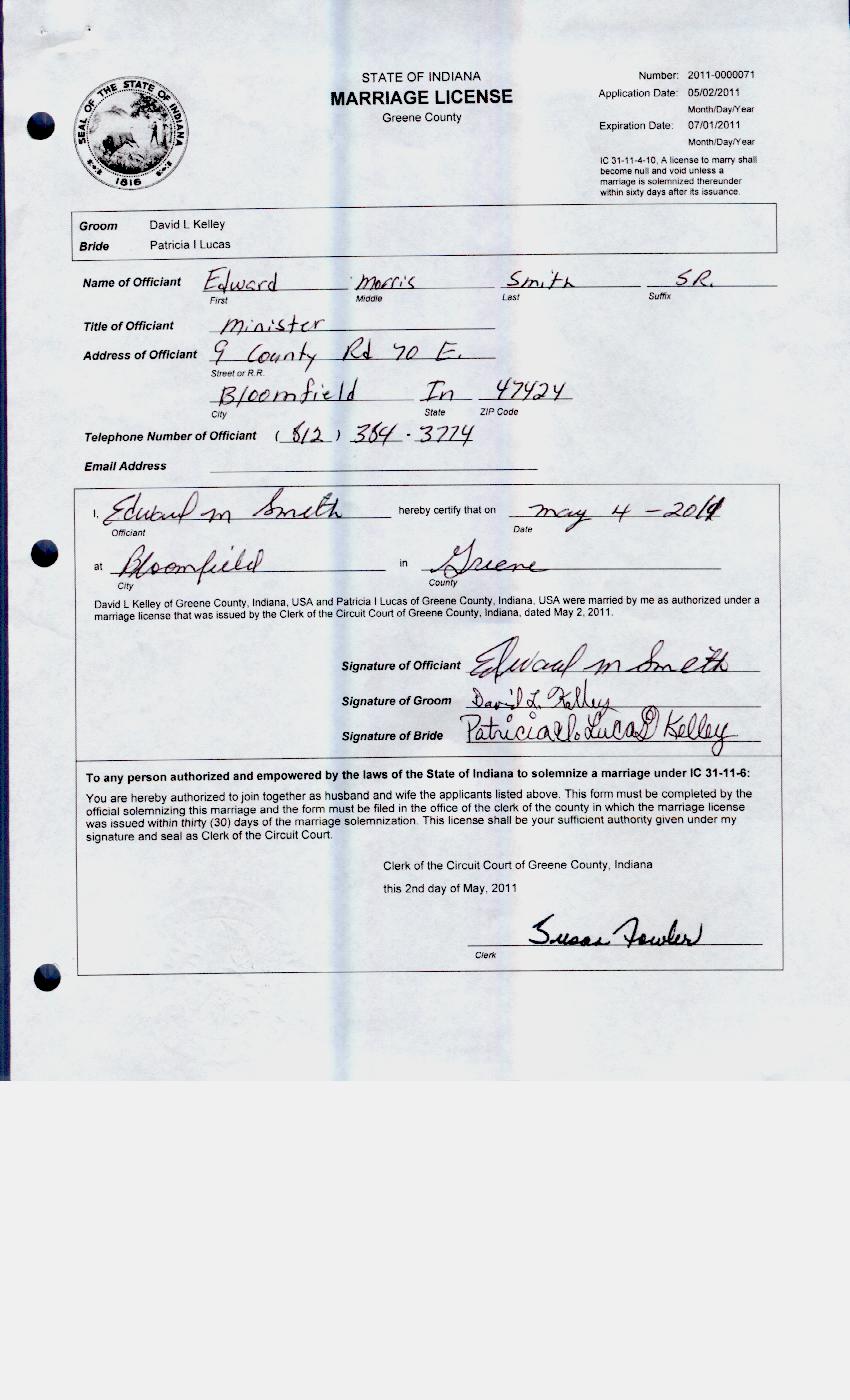 SEAL OF THE STATE OF INDIANA
1816
STATE OF INDIANA
MARRIAGE LICENSE
Greene County
Number: 2011-0000071
Application Date: 05/02/2011
Month/Day/Year
Expiration Date: 07/01/2011
Month/Day/Year
IC 31-11-4-10, A license to marry shall
become null and void unless a
marriage is solemnized thereunder
within sixty days after its issuance.
Groom David L Kelley
Bride Patricia I Lucas
Name of Officiant Edward Morris Smith SR.
First Middle Last Suffix
Title of Officiant Minister
Address of Officiant 9 County Rd 70 E.
Street or R.R.
Bloomfield In 47424
City State ZIP Code
Telephone Number of Officiant (812) 384-3774
Email Address
I, Edward m Smith hereby certify that on may 4 - 2011
Officiant Date
at Bloomfield in Greene
City County
David L Kelley of Greene County, Indiana, USA and Patricia I Lucas of Greene County, Indiana, USA were married by me as authorized under a
marriage license that was issued by the Clerk of the Circuit Court of Greene County, Indiana, dated May 2, 2011.
Signature of Officiant Edward m Smith
Signature of Groom David L. Kelley
Signature of Bride Patricia I. Lucas Kelley
To any person authorized and empowered by the laws of the State of Indiana to solemnize a marriage under IC 31-11-6:
You are hereby authorized to join together as husband and wife the applicants listed above. This form must be completed by the
official solemnizing this marriage and the form must be filed in the office of the clerk of the county in which the marriage license
was issued within thirty (30) days of the marriage solemnization. This license shall be your sufficient authority given under my
signature and seal as Clerk of the Circuit Court.
Clerk of the Circuit Court of Greene County, Indiana
this 2nd day of May, 2011
Susan Fowler
Clerk